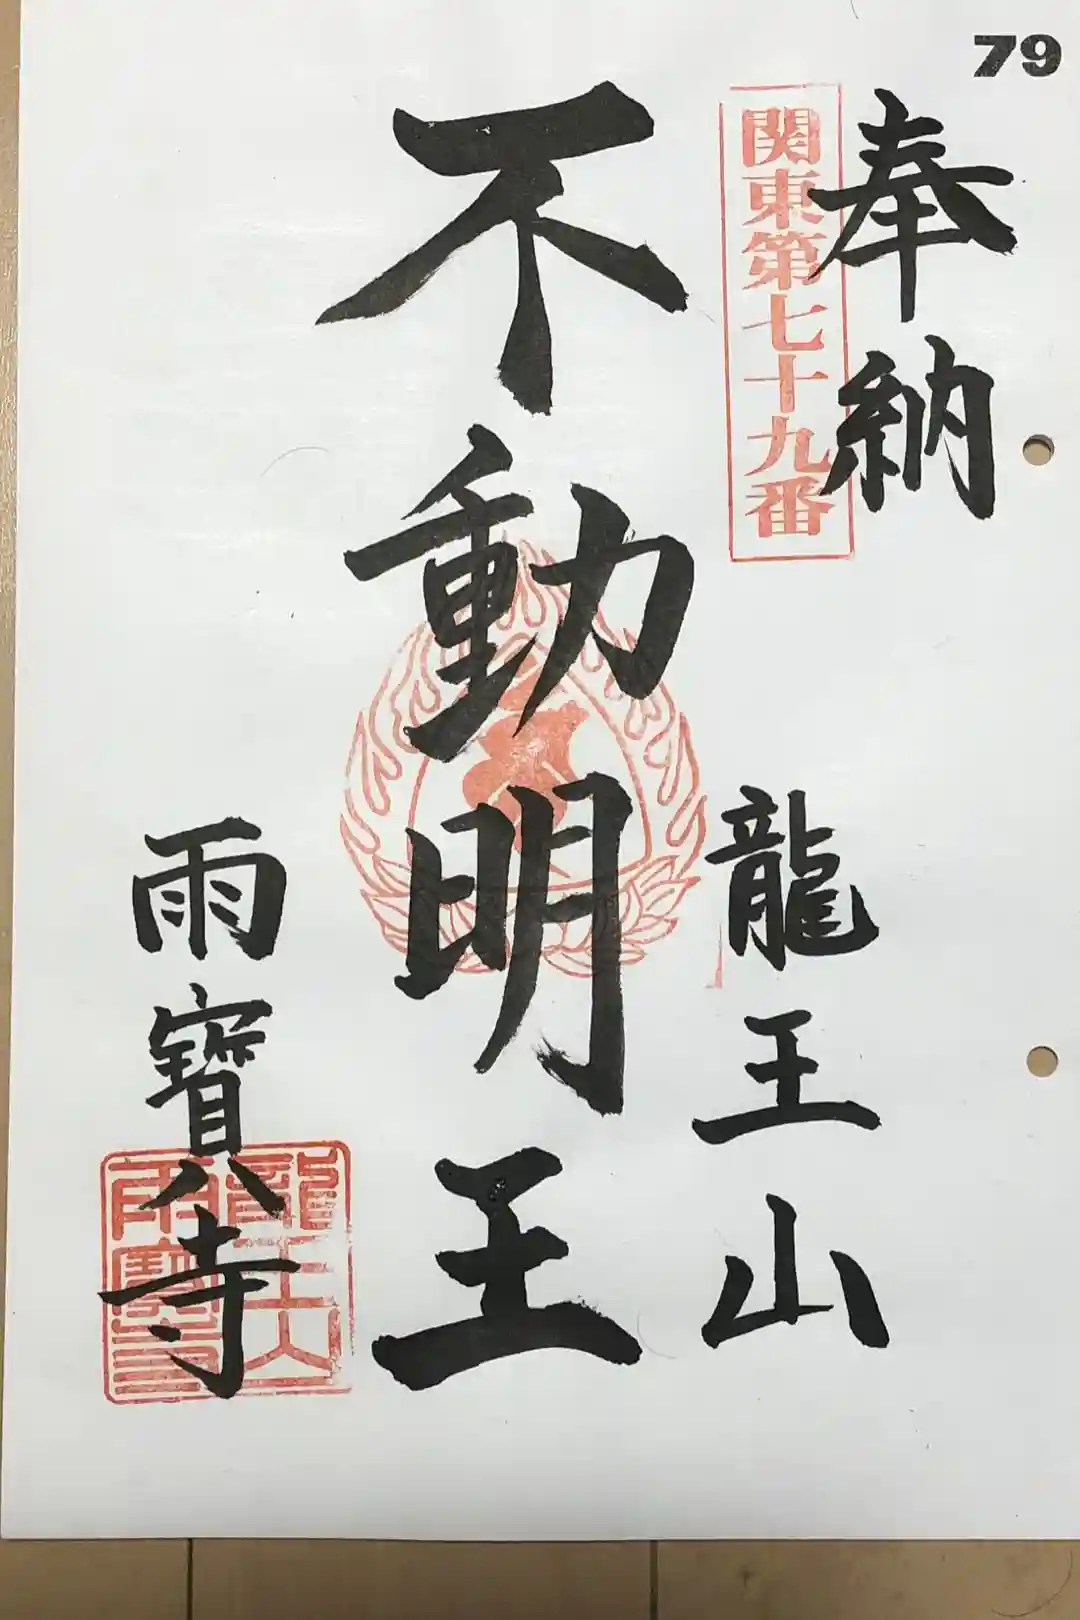 79
奉納
関東第七十九番
龍王山
不動明王
雨寶寺
龍王山
雨寶寺